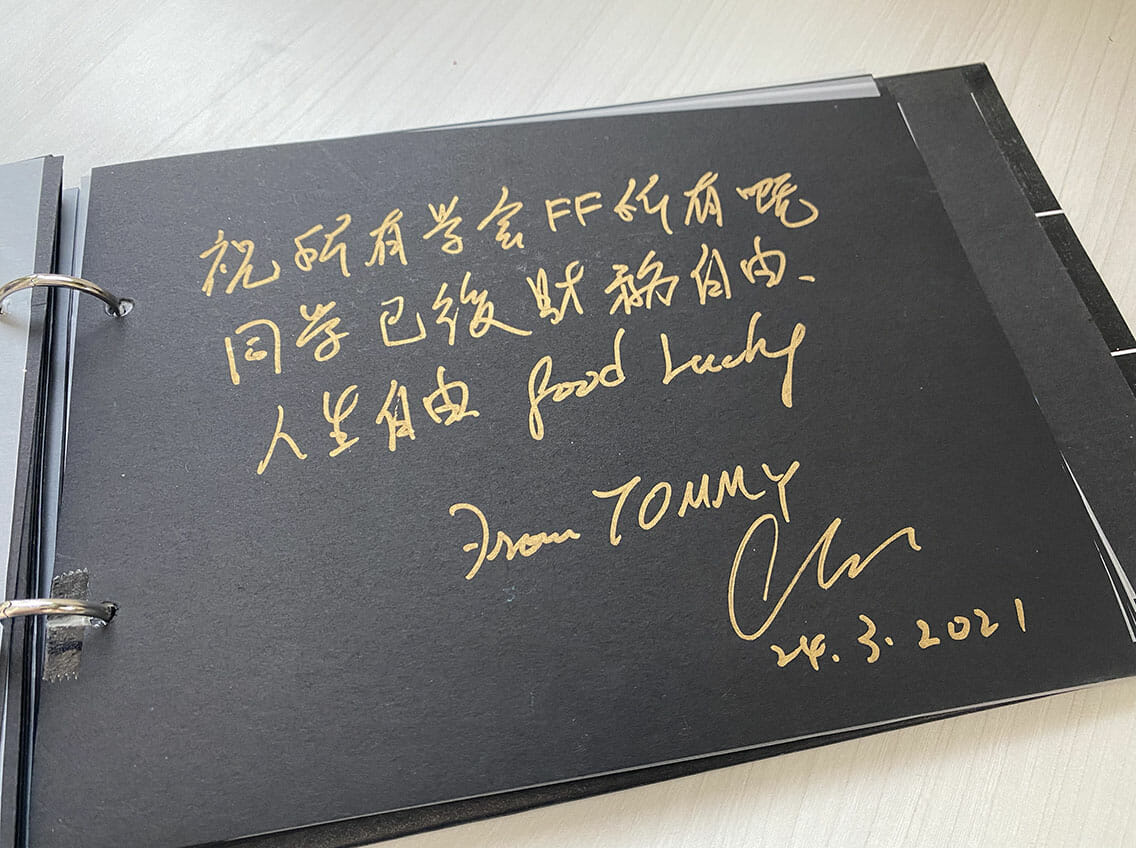 祝所有学会FF所有嘅
同学已後財務自由、
人生自由 Good Lucky
From TOMMY
24.3.2021